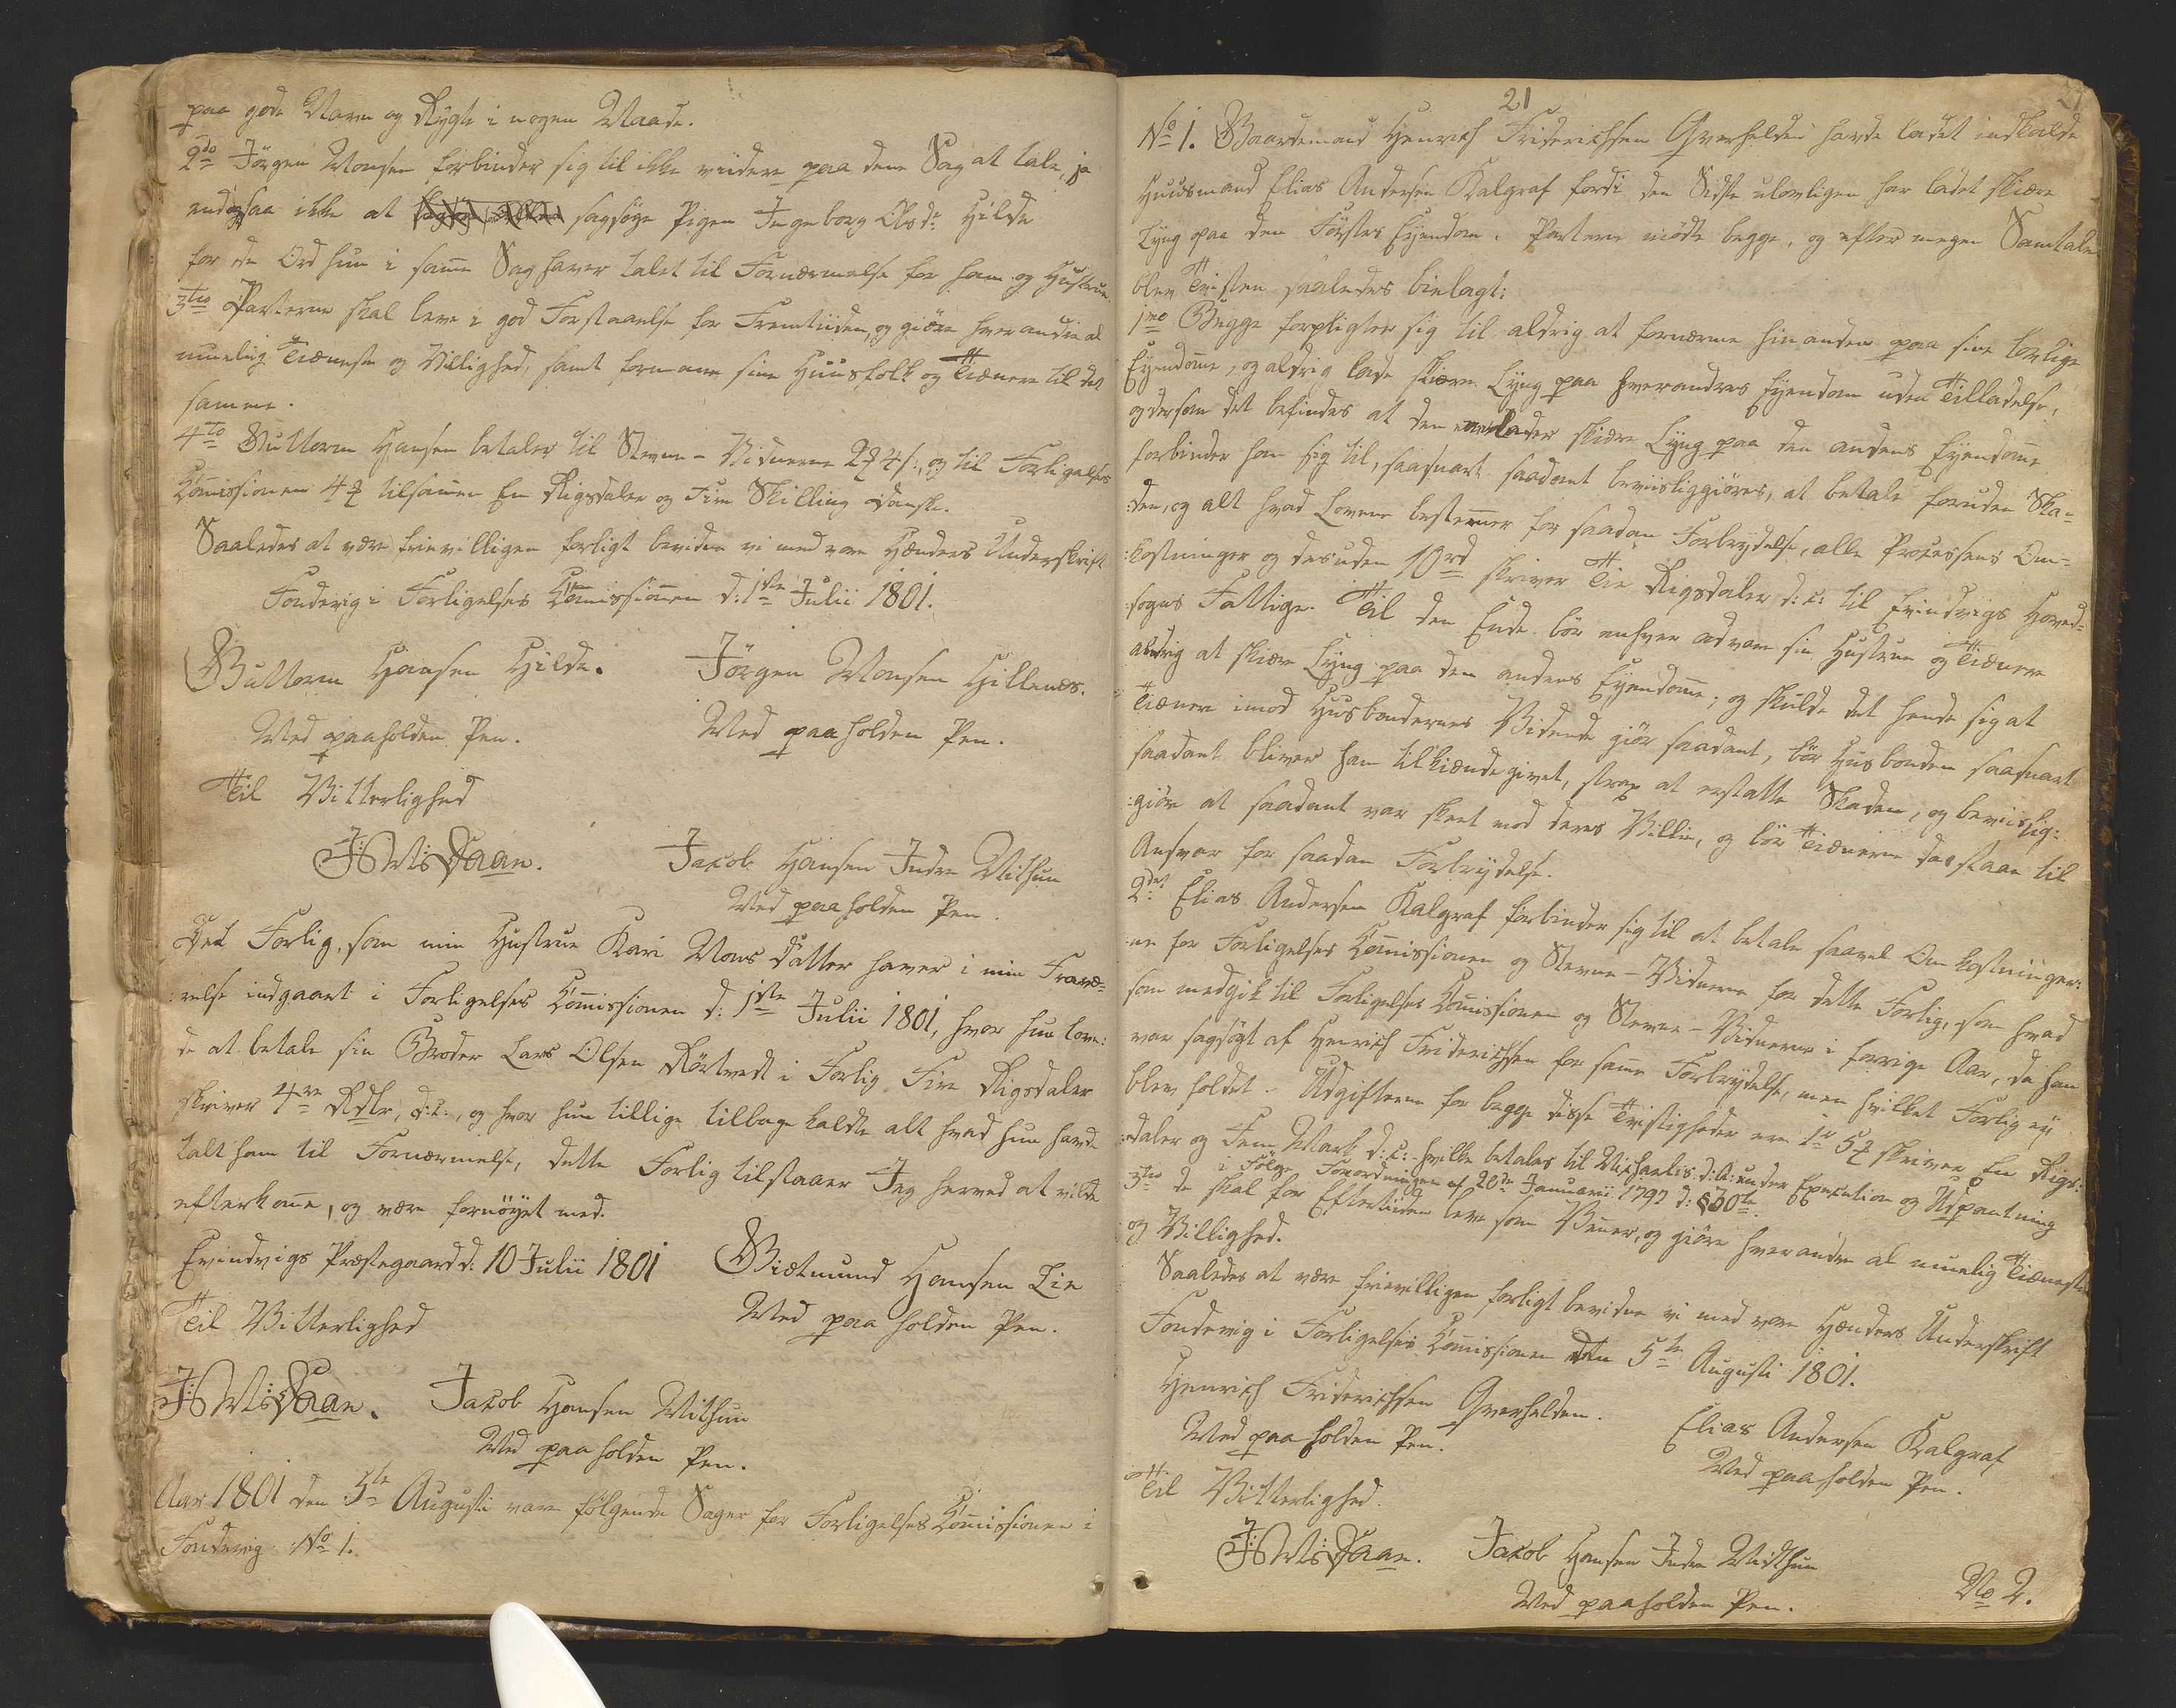 paa gode Navn og Rygte i nogen Maade.
2do Jörgen Monsen forbinder sig til ikke viidere paa denne Sag at tale, ja
endogsaa ikke at sagsöge Pigen Ingeborg Olsdr Hilde
for de Ord hun i samme Sag haver talet til Fornærmelse for ham og Hustrue.
3tio Parterne skal leve i god Forstaaelse for Fremtiiden, og giöre hverandre al
muelig Tieneste og Villighed, samt formane sine Huusfolk og Tienere til det
samme.
4to Guttorm Hansen betaler til Stevne-Vidnerne 2 4 s:, og til Forligelses
Comissionen 4 tilsamen En Rigsdaler og Fire Skilling danske.
Saaledes at være frievilligen forligt bevidne vi med vore Hænders Underskrift
Sondevig i Forligelses Comissionen d: 1ste Julii 1801.
Guttorm Hansen Hilde. Jörgen Monsen Hillenes.
Med paaholden Pen. Med paaholden Pen.
Til Vitterlighed
Daae. Jacob Hansen Indre Mithun
Med paaholden Pen.
Det Forlig, som min Hustrue Kari Mons datter haver i min Fravæ=
:relse indgaaet i Forligelses Comissionen d: 1ste Julii 1801, hvor hun love:
de at betale sin Broder Lars Olsen Rörtvedt i Forlig Fire Rigsdaler
skriver 4re Rdlr, d:c:, og hvor hun tillige tilbage kaldte alt hvad hun havde
talt ham til Fornærmelse, dette Forlig tilstaaer Jeg herved at vilde
efterkome, og være fornöyet med.
Evindvigs Præstegaard d: 10 Julii 1801 Gietmund Hansen Lie
Til Vitterlighed Med paa holden Pen.
Daae. Jacob Hansen Mithun
Med paa holden Pen.
Aar 1801 den 5te Augusti vare fölgende Sager for Forligelses Comissionen i
Sondevig No 1.
21
21
No 1. Gaardemand Henrich Friderichsen Qverhelden havde ladet indkalde
Huusmand Elias Andersen Kalgraf fordi den Sidste ulovligen har ladet skiære
Lyng paa den Förstes Eyendom. Parterne mödte begge, og efter megen Samtale
blev Tvisten saaledes bielagt:
1mo Begge forpligter sig til aldrig at fornærme hinanden paa sine lovlige
Eyendome, og aldrig lade skiære Lyng paa hverandres Eyendom uden Tilladelse,
og dersom det befindes at den ene lader skiære Lyng paa den andens Eyendome
forbinder han sig til, saasnart saadant beviisliggiöres, at betale foruden Ska=
:den, og alt hvad Loven bestemer for saadan Forbrydelse, alle Processens Om=
:kostninger og desuden 10rd skriver Tie Rigsdaler d:c: til Evindvigs Hoved=
:sogns Fattige. Til den Ende bör enhver advare sin Hustrue og Tienere
aldrig at skiære Lyng paa den andens Eyendome; og skulde det hende sig at
Tienere imod Husbondernes Vidende giör saadant, bör Husbonden saasnart
saadant bliver ham tilkiendegivet, strax at erstatte Skaden, og beviislig:
:giöre at saadant var skeet mod deres Villie, og bör Tienerne da staae til
Ansvar for saadan Forbrydelse.
2det Elias Andersen Kalgraf forbinder sig til at betale saavel Omkostninger:
:ne for Forligelses Comissionen og Stevne-Vidnerne for dette Forlig, som hvad
som medgik til Forligelses Comissionen og Stevne-Vidnerne i forrige Aar, da han
var sagsögt af Henrich Friderichsen for same Forbrydelse, men hvilket Forlig ey
blev holdet. Udgifterne for begge disse Tvistigheder ere 1r 5 skriver En Rigs:
:daler og Fem Mark d:c: hvilke betales til Michaelis d:A: under Execution og Udpantning
i Fölge Forordningen af 20de Januarii 1797 d: §30te.
3tio de skal for Eftertiiden leve som Vener, og giöre hverandre al muelig Tieneste
og Villighed.
Saaledes at være frievilligen forligt bevidne vi med vore Hænders Underskrift
Sondevig i Forligelses Comissionen den 5te Augusti 1801.
Henrich Friderichsen Qverhelden. Elias Andersen Kalgraf
Med paa holden Pen. Med paaholden Pen.
Til Vitterlighed.
Daae. Jacob Hansen Indre Midthun
Med paaholden Pen.
No 2.